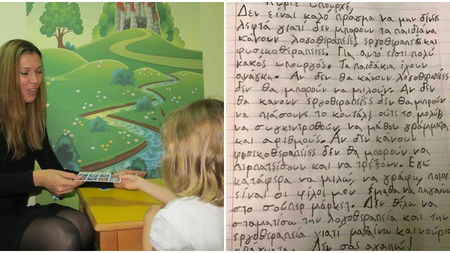 Κύριε Υπουργέ,
Δεν είναι καλό πράγμα να μην δίνεις
λεφτά γιατί δεν μπορούν τα παιδιά να
κάνουν λογοθεραπείες εργοθεραπείες και
φυσικοθεραπείες. Για αυτό είστε πολύ
κακός υπουργός. Τα παιδάκια έχουν
ανάγκη. Αν δεν θα κάνουν λογοθεραπείες
δεν θα μπορούν να μιλούν. Αν δεν
θα κανουν εργοθεραπείες δεν θα μπορούν
να πιάσουν το κουτάλι ούτε το μολύβι
να συγκεντρωθούν να μάθουν γράμματα
και αριθμούς. Αν δεν κάνουν
φυσικοθεραπείες δεν θα μπορούν να
περπατήσουν και να τρέξουν. Εγώ
κατάφερα να μιλώ, να γράφω, ποιοι
είναι οι φίλοι μου έμαθα να πηγαίνω
στο σούπερ μάρκετ. Δεν θέλω να
σταματήσω την λογοθεραπεία και την
εργοθεραπεία γιατί μαθαίνω καινούρια
πράγματα. Δεν σας αγαπώ!